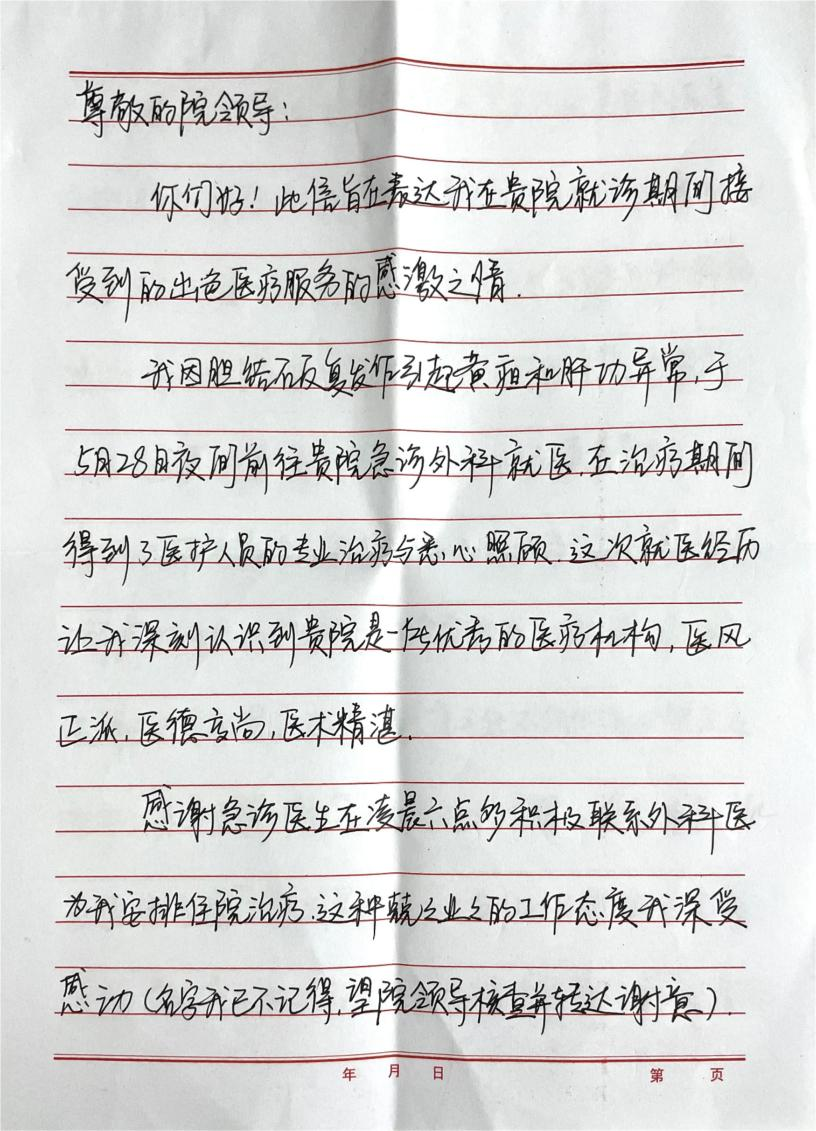 尊敬的院领导：
你们好！此信旨在表达我在贵院就诊期间接
受到的出色医疗服务的感激之情.
我因胆结石反复发作引起黄疸和肝功异常,于
5月28日夜间前往贵院急诊外科就医.在治疗期间
得到了医护人员的专业治疗与悉心照顾.这次就医经历
让我深刻认识到贵院是一所优秀的医疗机构,医风
正派,医德高尚,医术精湛.
感谢急诊医生在凌晨六点多积极联系外科医
为我安排住院治疗.这种兢兢业业的工作态度我深受
感动(名字我已不记得,望院领导核查并转达谢意).
年 月 日
第 页